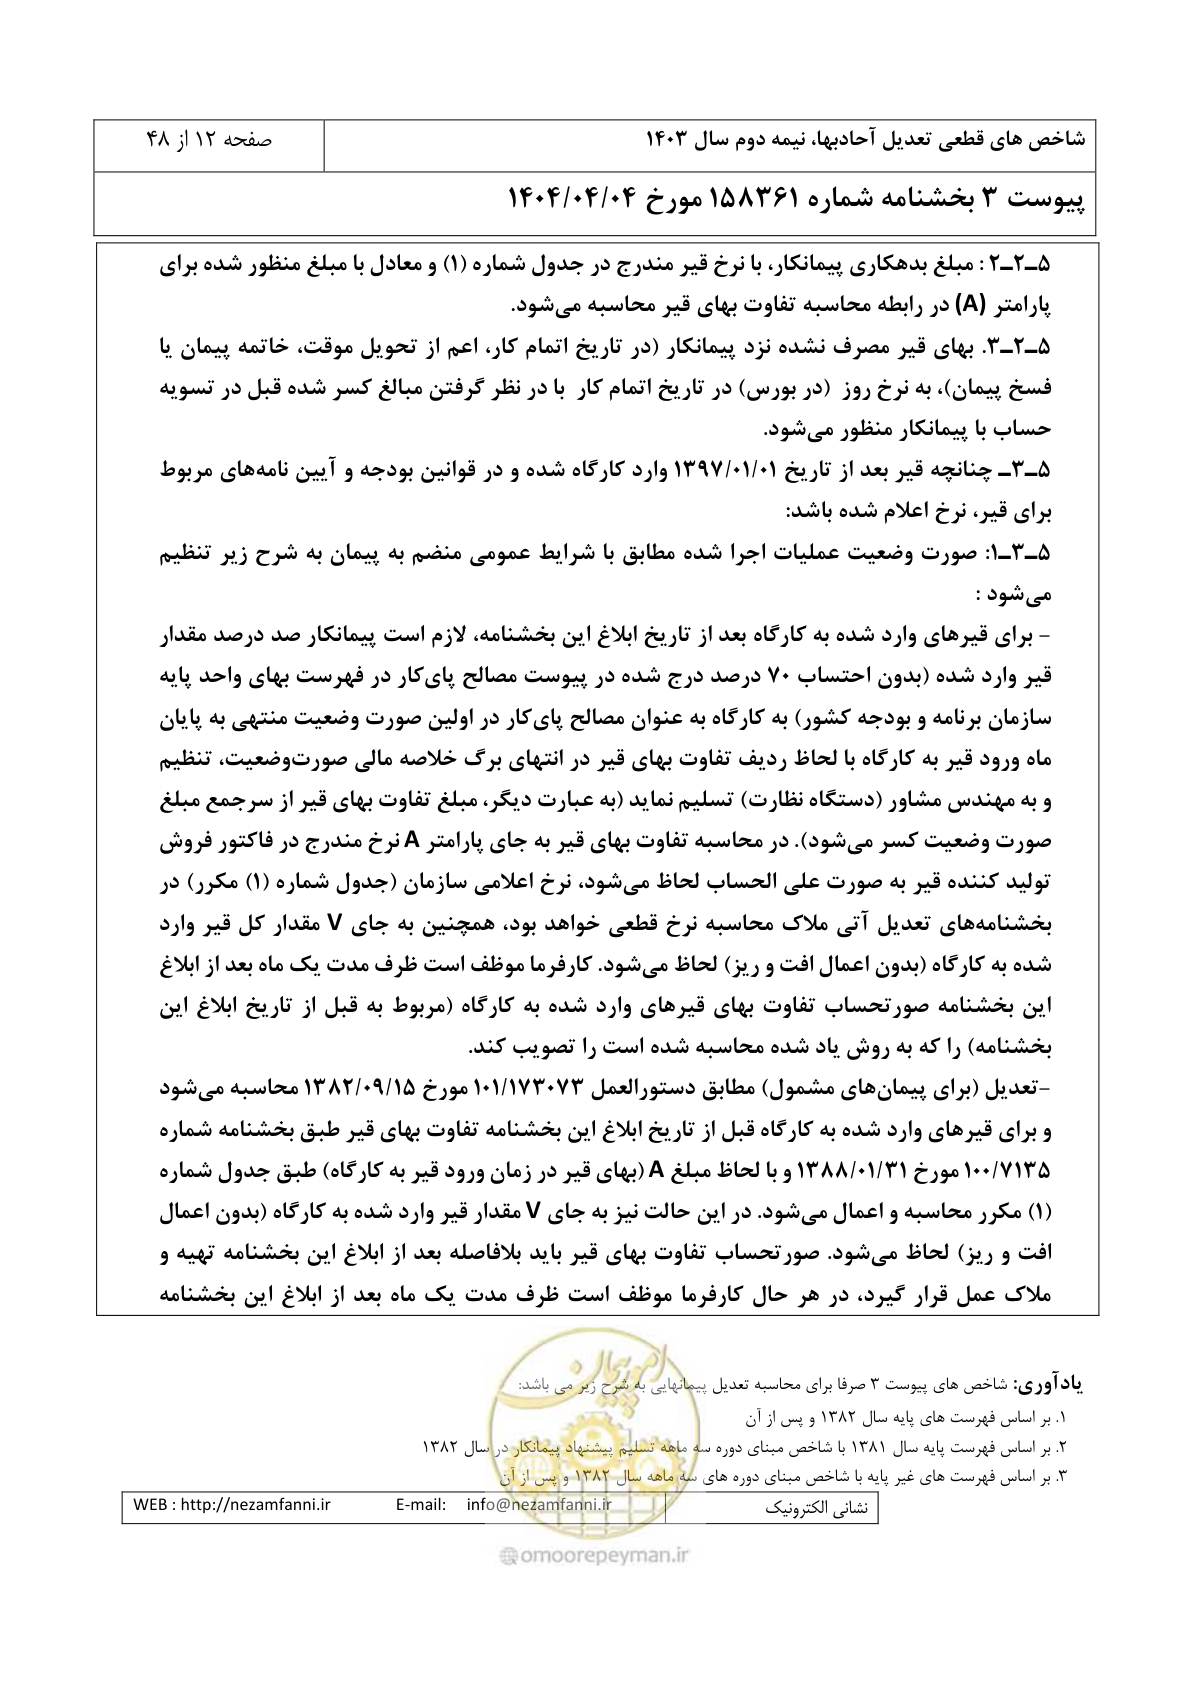 شاخص های قطعی تعدیل آحادبها، نیمه دوم سال ۱۴۰۳
صفحه ۱۲ از ۴۸
پیوست ۳ بخشنامه شماره ۱۵۸۳۶۱ مورخ ۱۴۰۴/۰۴/۰۴
۵ــ۲ــ۲ : مبلغ بدهکاری پیمانکار، با نرخ قیر مندرج در جدول شماره (۱) و معادل با مبلغ منظور شده برای
پارامتر (A) در رابطه محاسبه تفاوت بهای قیر محاسبه می‌شود.
۵ــ۲ــ۳. بهای قیر مصرف نشده نزد پیمانکار (در تاریخ اتمام کار، اعم از تحویل موقت، خاتمه پیمان یا
فسخ پیمان)، به نرخ روز (در بورس) در تاریخ اتمام کار با در نظر گرفتن مبالغ کسر شده قبل در تسویه
حساب با پیمانکار منظور می‌شود.
۵ــ۳ــ چنانچه قیر بعد از تاریخ ۱۳۹۷/۰۱/۰۱ وارد کارگاه شده و در قوانین بودجه و آیین نامه‌های مربوط
برای قیر، نرخ اعلام شده باشد:
۵ــ۳ــ۱: صورت وضعیت عملیات اجرا شده مطابق با شرایط عمومی منضم به پیمان به شرح زیر تنظیم
می‌شود :
– برای قیرهای وارد شده به کارگاه بعد از تاریخ ابلاغ این بخشنامه، لازم است پیمانکار صد درصد مقدار
قیر وارد شده (بدون احتساب ۷۰ درصد درج شده در پیوست مصالح پای‌کار در فهرست بهای واحد پایه
سازمان برنامه و بودجه کشور) به کارگاه به عنوان مصالح پای‌کار در اولین صورت وضعیت منتهی به پایان
ماه ورود قیر به کارگاه با لحاظ ردیف تفاوت بهای قیر در انتهای برگ خلاصه مالی صورت‌وضعیت، تنظیم
و به مهندس مشاور (دستگاه نظارت) تسلیم نماید (به عبارت دیگر، مبلغ تفاوت بهای قیر از سرجمع مبلغ
صورت وضعیت کسر می‌شود). در محاسبه تفاوت بهای قیر به جای پارامتر A نرخ مندرج در فاکتور فروش
تولید کننده قیر به صورت علی الحساب لحاظ می‌شود، نرخ اعلامی سازمان (جدول شماره (۱) مکرر) در
بخشنامه‌های تعدیل آتی ملاک محاسبه نرخ قطعی خواهد بود، همچنین به جای V مقدار کل قیر وارد
شده به کارگاه (بدون اعمال افت و ریز) لحاظ می‌شود. کارفرما موظف است ظرف مدت یک ماه بعد از ابلاغ
این بخشنامه صورتحساب تفاوت بهای قیرهای وارد شده به کارگاه (مربوط به قبل از تاریخ ابلاغ این
بخشنامه) را که به روش یاد شده محاسبه شده است را تصویب کند.
–تعدیل (برای پیمان‌های مشمول) مطابق دستورالعمل ۱۰۱/۱۷۳۰۷۳ مورخ ۱۳۸۲/۰۹/۱۵ محاسبه می‌شود
و برای قیرهای وارد شده به کارگاه قبل از تاریخ ابلاغ این بخشنامه تفاوت بهای قیر طبق بخشنامه شماره
۱۰۰/۷۱۳۵ مورخ ۱۳۸۸/۰۱/۳۱ و با لحاظ مبلغ A (بهای قیر در زمان ورود قیر به کارگاه) طبق جدول شماره
(۱) مکرر محاسبه و اعمال می‌شود. در این حالت نیز به جای V مقدار قیر وارد شده به کارگاه (بدون اعمال
افت و ریز) لحاظ می‌شود. صورتحساب تفاوت بهای قیر باید بلافاصله بعد از ابلاغ این بخشنامه تهیه و
ملاک عمل قرار گیرد، در هر حال کارفرما موظف است ظرف مدت یک ماه بعد از ابلاغ این بخشنامه
یادآوری: شاخص های پیوست ۳ صرفا برای محاسبه تعدیل پیمانهایی به شرح زیر می باشد:
۱. بر اساس فهرست های پایه سال ۱۳۸۲ و پس از آن
۲. بر اساس فهرست پایه سال ۱۳۸۱ با شاخص مبنای دوره سه ماهه تسلیم پیشنهاد پیمانکار در سال ۱۳۸۲
۳. بر اساس فهرست های غیر پایه با شاخص مبنای دوره های سه ماهه سال ۱۳۸۲ و پس از آن
نشانی الکترونیک
E-mail: info@nezamfanni.ir
WEB : http://nezamfanni.ir
امور پیمان
@omoorepeyman.ir